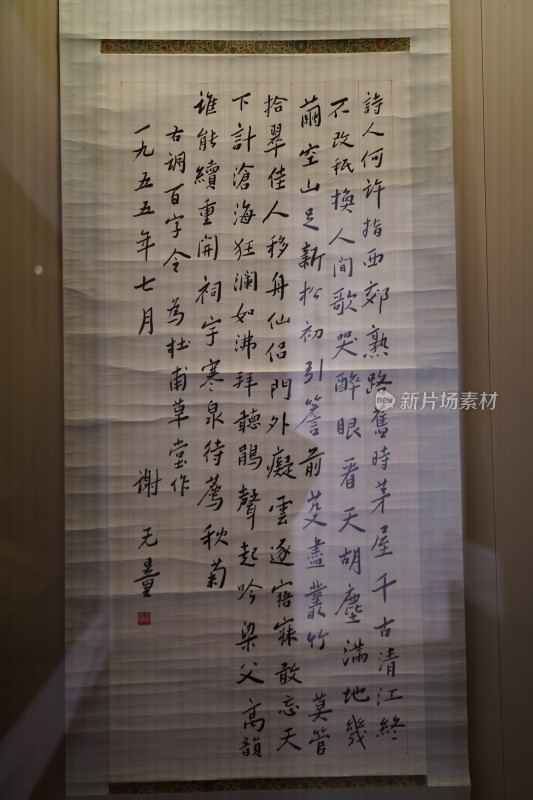 詩人何許指西郊熟路舊時茅屋千古清江終
不改秖換人間歌哭醉眼看天胡塵滿地幾
繭空山足新松初引簷前芟盡叢竹 莫管
拾翠佳人移舟仙侶門外癡雲逐寤寐敢忘天
下計滄海狂瀾如沸拜聽鵑聲起吟梁父高韻
誰能續重開祠宇寒泉待薦秋菊
古調百字令為杜甫草堂作
一九五五年七月 謝无量
新片场素材